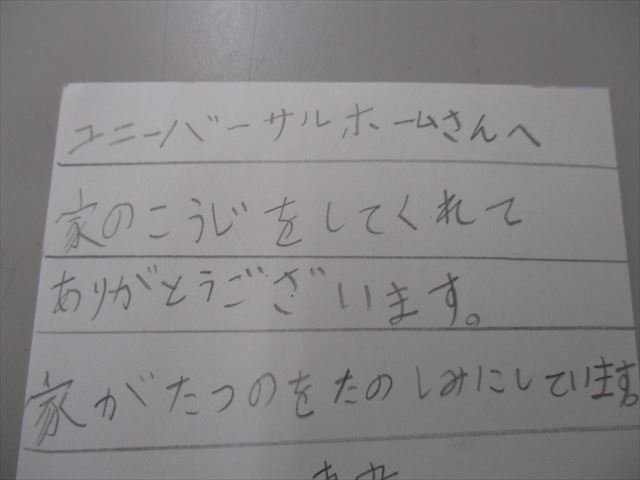 ユニーバーサルホームさんへ
家のこうじをしてくれて
ありがとうございます。
家がたつのをたのしみにしています。